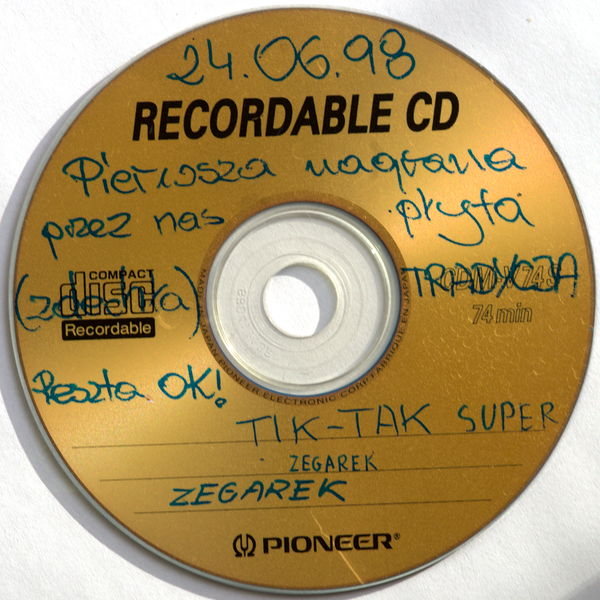 24.06.98
RECORDABLE CD
Pierwsza nagrana
przez nas płyta
COMPACT
disc
Recordable
TRADYCJA
74 min
MADE IN JAPAN PIONEER ELECTRONIC CORP FABRIQUE EN JAPAN
Reszta OK!
TIK-TAK SUPER
ZEGAREK
ZEGAREK
PIONEER®